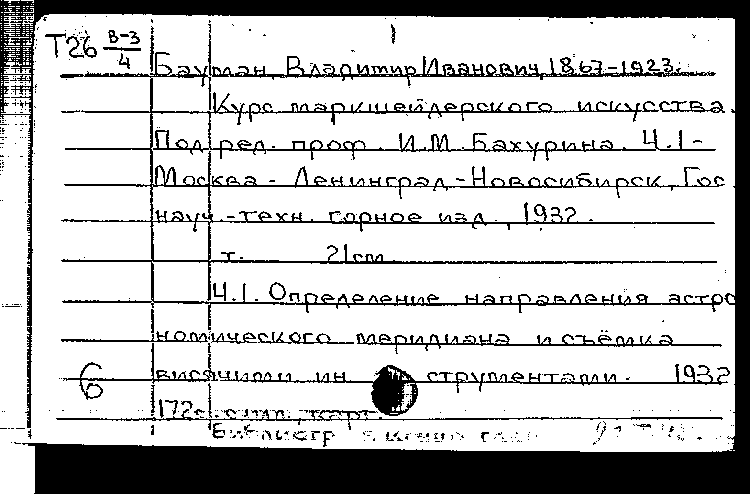 Т26 В-3/4
Бауман, Владимир Иванович, 1867-1923.
Курс маркшейдерского искусства.
Под ред. проф. И.М. Бахурина. Ч.1-
Москва - Ленинград - Новосибирск, Гос.
науч.-техн. горное изд., 1932.
т. 21см
Ч.1. Определение направления астро
номического меридиана и съёмка
висячими инструментами. 1932
6
172с. с илл., карт.